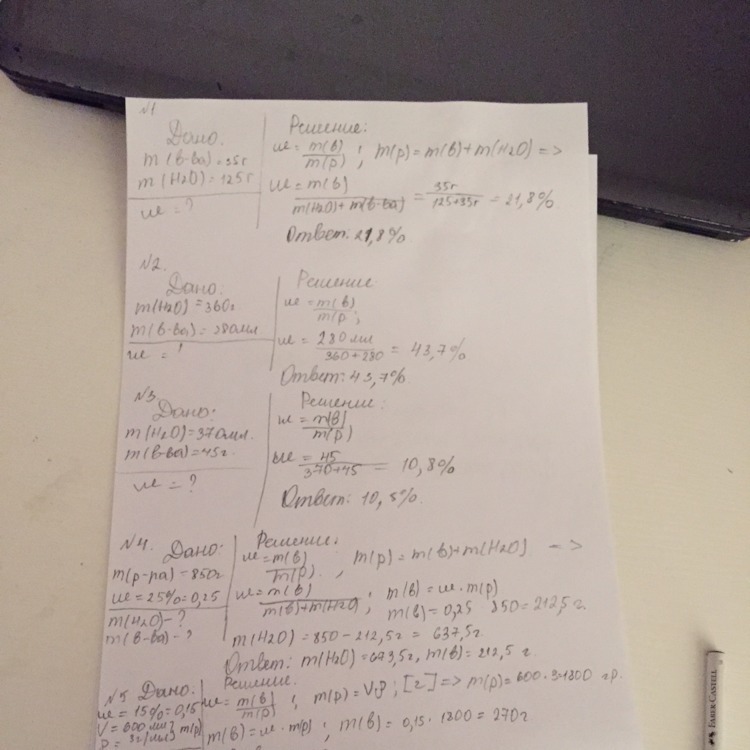 N1
Дано:
m(в-ва) = 35г
m(H2O) = 125г
ω = ?
Решение:
ω = m(в)/m(р) ; m(р) = m(в) + m(H2O) =>
ω = m(в)/m(H2O) + m(в-ва) = 35г/125+35г = 21,8%
Ответ: 21,8%
N2.
Дано:
m(H2O) = 360г
m(в-ва) = 280мл.
ω = ?
Решение
ω = m(в)/m(р) ;
ω = 280мл/360+280 = 43,7%
Ответ: 43,7%
N3
Дано:
m(H2O) = 370мл.
m(в-ва) = 45г.
ω = ?
Решение:
ω = m(в)/m(р)
ω = 45/370+45 = 10,8%
Ответ: 10,8%.
N4.
Дано:
m(р-ра) = 850г
ω = 25% = 0,25
m(H2O) - ?
m(в-ва) - ?
Решение:
ω = m(в)/m(р) ; m(р) = m(в) + m(H2O) =>
ω = m(в)/m(в)+m(H2O) ; m(в) = ω · m(р)
m(в) = 0,25 · 850 = 212,5г.
m(H2O) = 850 - 212,5г = 637,5г
Ответ: m(H2O) = 673,5г, m(в) = 212,5г
N5
Дано:
ω = 15% = 0,15
V = 600мл } m(р)
ρ = 3г/мл
Решение:
ω = m(в)/m(р) ; m(р) = Vρ ; [г] => m(р) = 600 · 3 = 1800 гр.
m(в) = ω · m(р) ; m(в) = 0,15 · 1800 = 270г
FABER-CASTELL